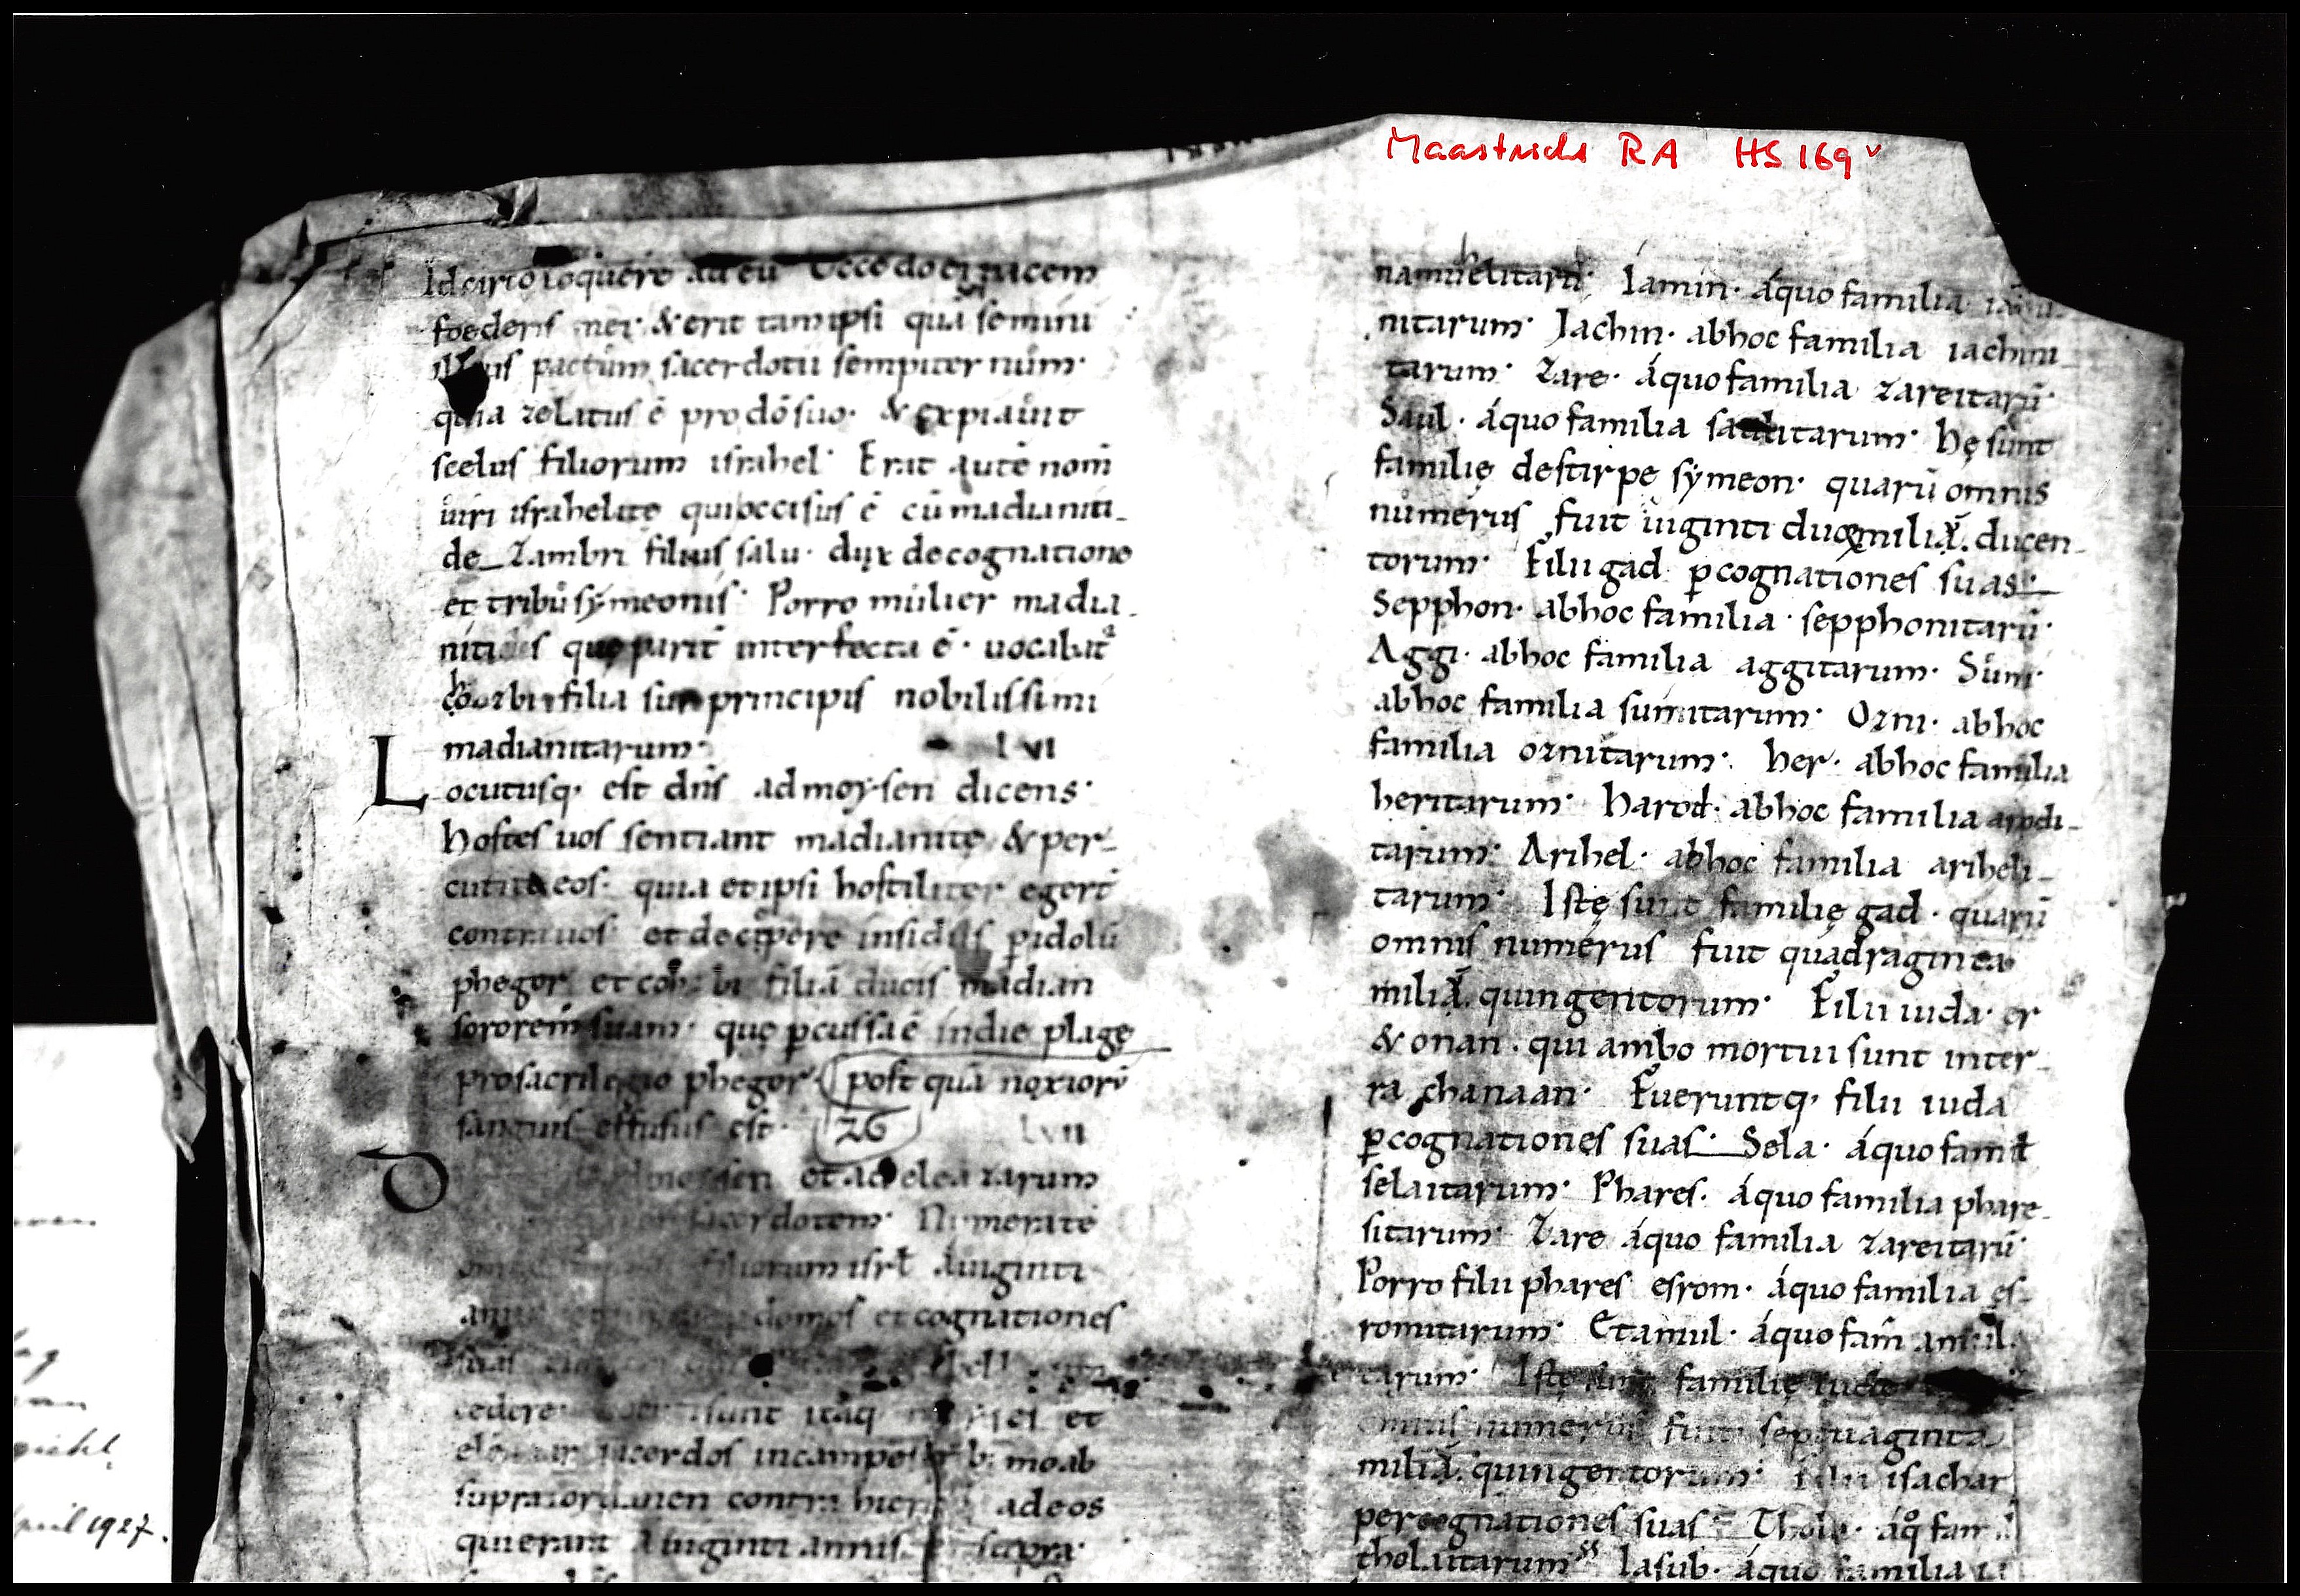 Maastricht RA HS 169v
Idcirco loquere ad eū Ecce do ei pacem
foederis mei· & erit tam ipsi quā seminii
illius pactum sacerdotii sempiternum·
quia zelatus ē pro dō suo· & expiauit
scelus filiorum israhel· Erat autē nom̄
uiri israhelitę qui occisus ē cū madianiti-
de Zambri filius salu· dux de cognatione
et tribu symeonis· Porro mulier madia-
nitis quę parit̄ interfecta ē· uocabat̄
cozbi filia sur principis nobilissimi
madianitarum· lvi
Locutusq· est dn̄s ad moysen dicens·
hostes uos sentiant madianitę & per-
cutite eos· quia et ipsi hostiliter egert̄
contra uos· et decepere insidiis p̱ idolū
phegor et cozbi filiā ducis madian
sororem suam· quę p̱cussa ē in die plagę
pro sacrilegio phegor· post quā noxiorū
sanguis effusus est· 26 lvii
D moysen et ad eleazarum
sacerdotem· Numerate
filiorum isrł a uiginti
domos et cognationes
suas
cedere· sunt itaq· et
sacerdos in campestrib; moab
supra iordanen contra hiericho ad eos
qui erant a uiginti annis· supra·
namuhelitarū· Iamin· á quo familia iami-
nitarum· Iachin· ab hoc familia iachini-
tarum· Zare· á quo familia zareitarū·
Saul· á quo familia saulitarum· hę sunt
familię de stirpe symeon· quarū omnis
numerus fuit uiginti duo milia· ducen-
torum· Filii gad p̱ cognationes suas·
Sepphon· ab hoc familia· sepphonitarū·
Aggi· ab hoc familia aggitarum· Suni·
ab hoc familia sunitarum· Ozni· ab hoc
familia oznitarum· her· ab hoc familia
heritarum· harod· ab hoc familia arodi-
tarum· Arihel· ab hoc familia ariheli-
tarum· Istę sunt familię gad· quarū
omnis numerus fuit quadraginta
milia· quingentorum· Filii iuda· er
& onan· qui ambo mortui sunt in ter-
ra chanaan· Fueruntq· filii iuda
p̱ cognationes suas· Sela· á quo famił
selaitarum· Phares· á quo familia phare-
sitarum· Zare á quo familia zareitarū·
Porro filii phares esrom· á quo familia es-
romitarum· Et amul· á quo fam̄ amuli-
tarum· Istę sunt familię iuda
omnis numerus fuit septuaginta
milia· quingentorum· Filii isachar
per cognationes suas· Thola· á q̊ fam
tholaitarum· Iasub· á quo familia ia
april 1927.